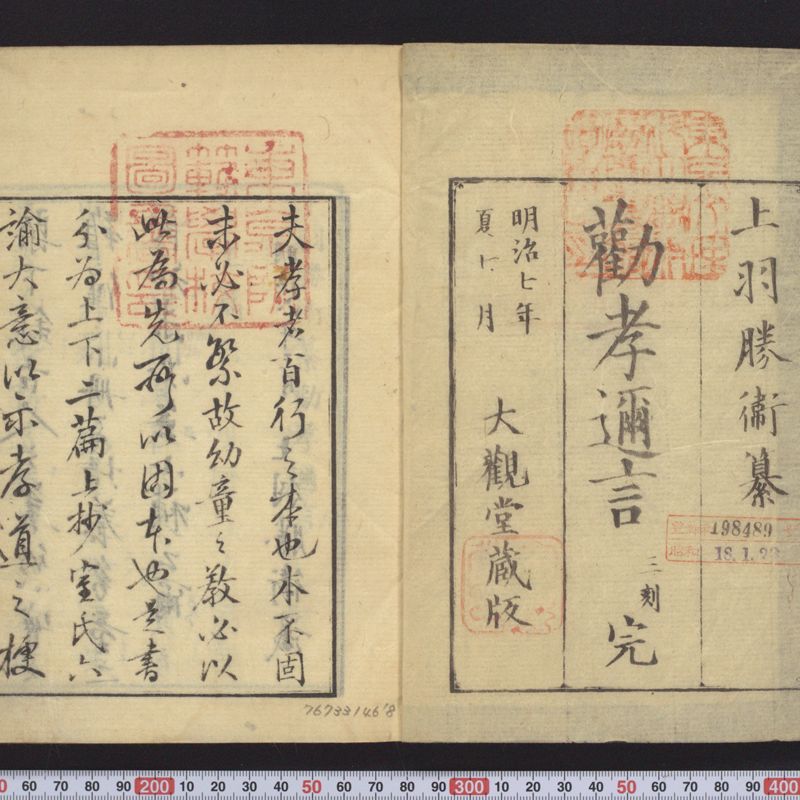 上羽勝衛纂
勸孝邇言 三刻 完
明治七年
夏七月
大觀堂蔵版
198489
昭和 18.1.22
夫孝者百行之本也本不固
末必不繁故幼童之教必以
此為先所以因本也是書
分為上下二篇上抄室氏六
諭大意以示孝道之梗
767331468
0 10 20 30 40 50 60 70 80 90 200 10 20 30 40 50 60 70 80 90 300 10 20 30 40 50 60 70 80 90 400